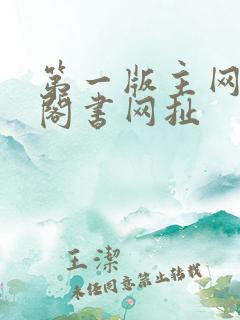 第一版主网
阁书网扯
王潔
未经同意禁止转载